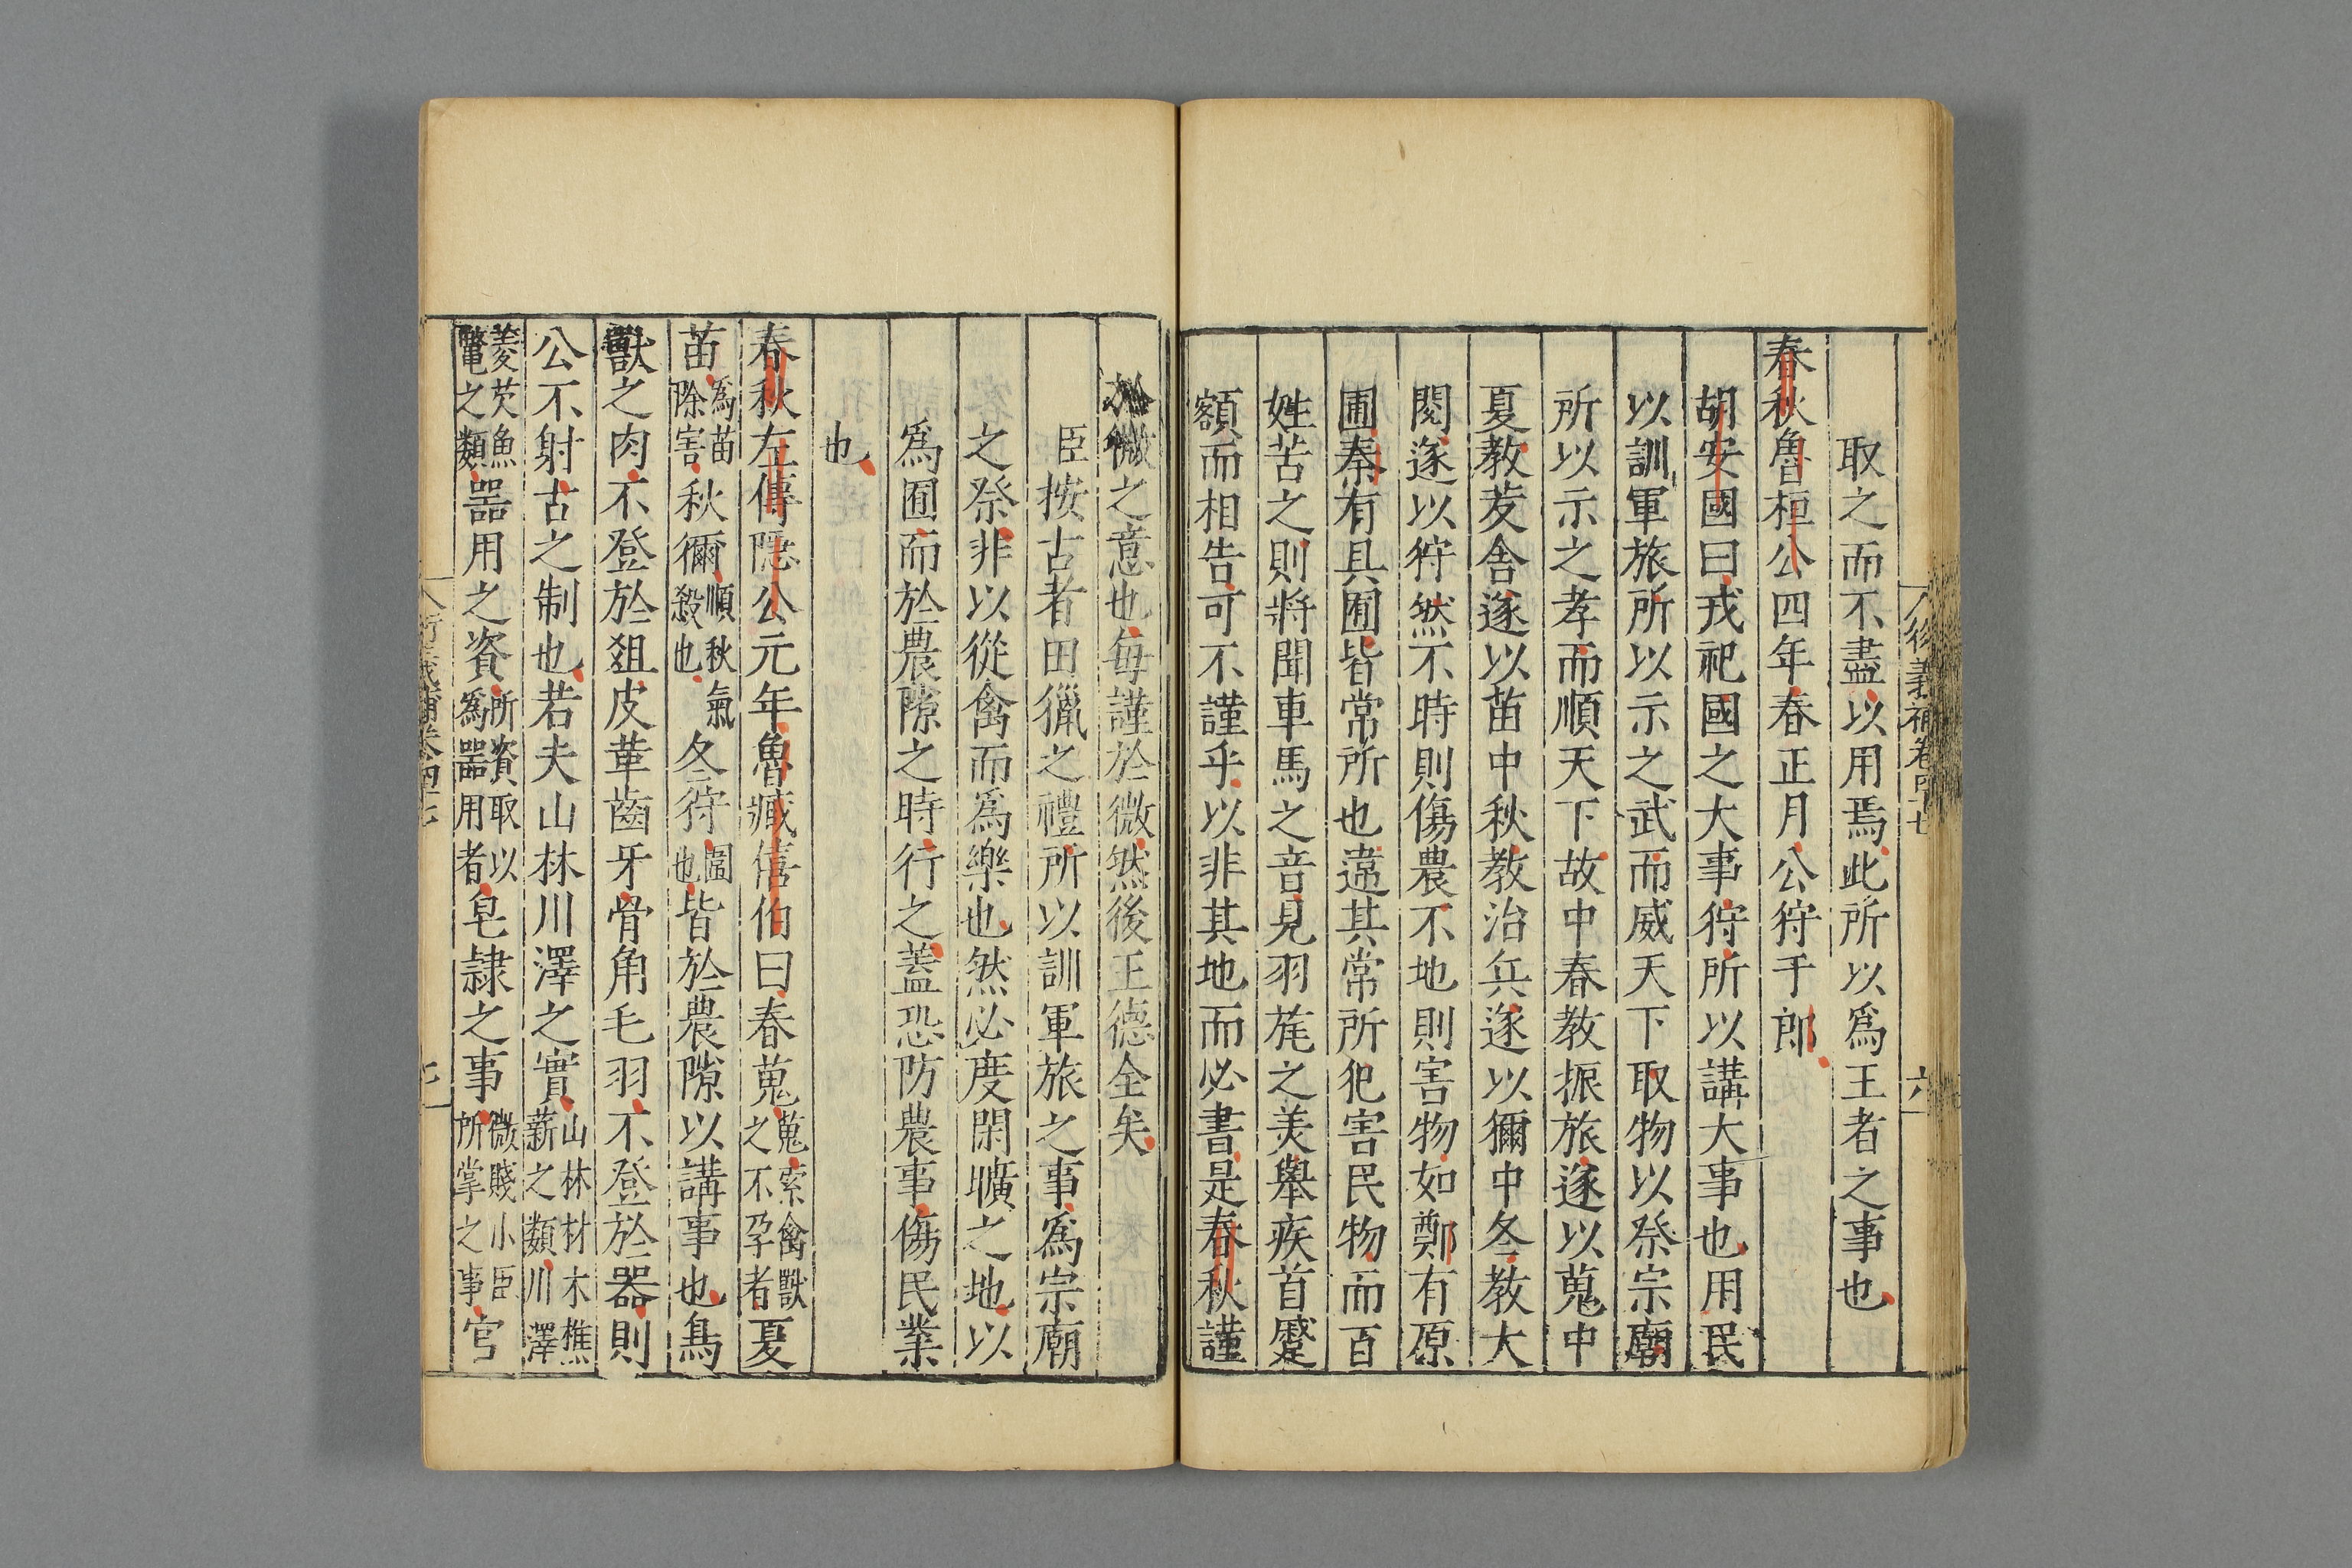 衍義補卷四十七
六
取之而不盡以用焉此所以爲王者之事也
春秋魯桓公四年春正月公狩于郎
胡安國曰戎祀國之大事狩所以講大事也用民
以訓軍旅所以示之武而威天下取物以祭宗廟
所以示之孝而順天下故中春教振旅遂以蒐中
夏教茇舍遂以苗中秋教治兵遂以獮中冬教大
閱遂以狩然不時則傷農不地則害物如鄭有原
圃秦有具囿皆常所也違其常所犯害民物而百
姓苦之則將聞車馬之音見羽旄之美舉疾首蹙
額而相告可不謹乎以非其地而必書是春秋謹
於微之意也每謹於微然後王德全矣
臣按古者田獵之禮所以訓軍旅之事爲宗廟
之祭非以從禽而爲樂也然必度閑曠之地以
爲囿而於農隙之時行之蓋恐防農事傷民業
也
春秋左傳隱公元年魯臧僖伯曰春蒐蒐索禽獸之不孕者夏
苗爲苗除害秋獮順秋氣殺也冬狩圍也皆於農隙以講事也鳥
獸之肉不登於俎皮革齒牙骨角毛羽不登於器則
公不射古之制也若夫山林川澤之實山林材木樵薪之類川澤
菱芡魚鼈之類器用之資所資取以爲器用者皂隷之事微賤小臣所掌之事官
衍義補卷四十七
七